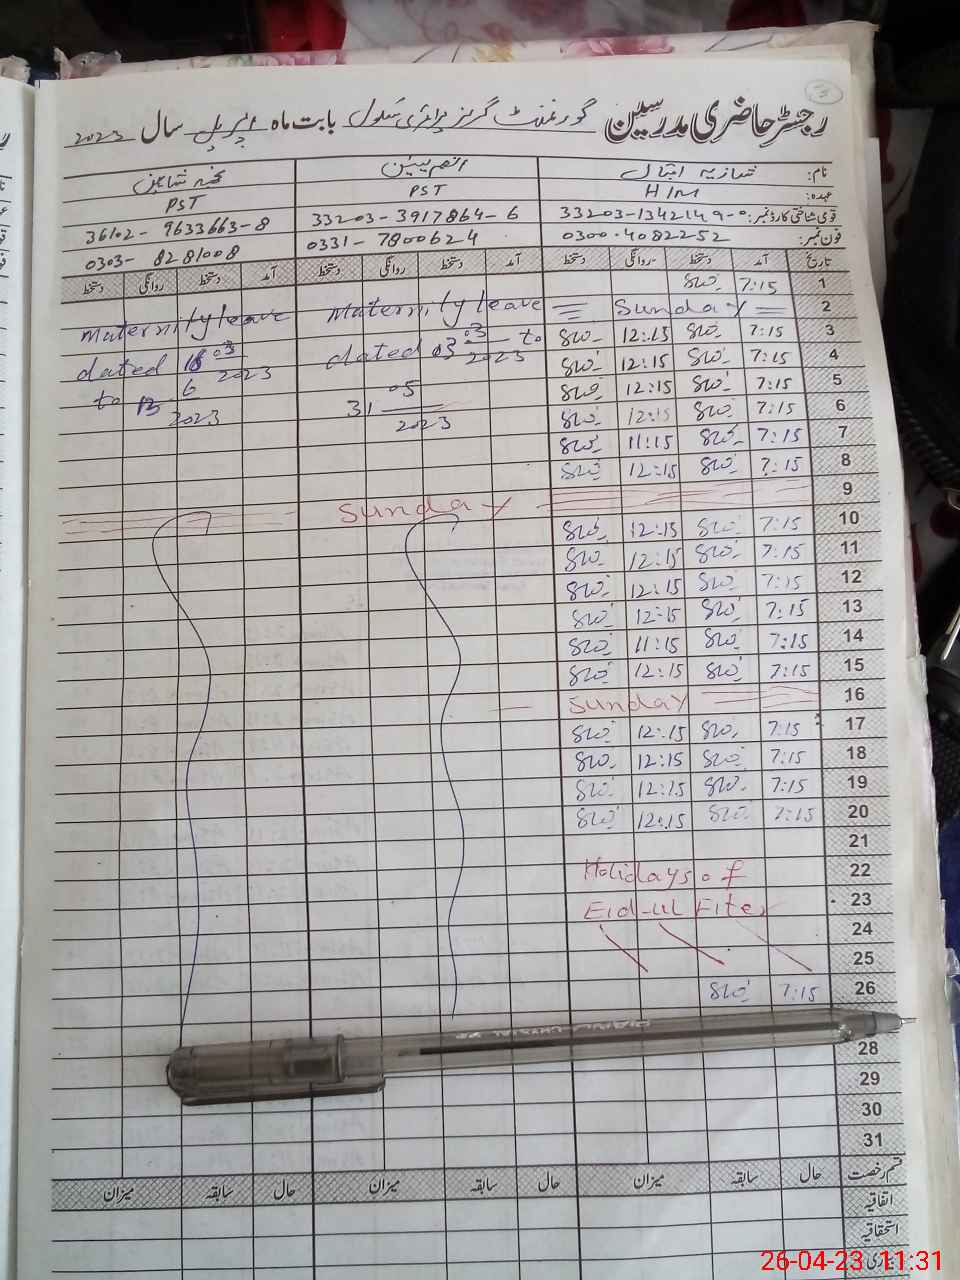 رجسٹر حاضری مدرسین گورنمنٹ گرلز پرائمری سکول بابت ماہ اپریل سال 2023
نام: شازیہ اقبال
عہدہ: PST PST
قومی شناختی کارڈ نمبر: 33203-1342149-0 33203-3917864-6 36102-9633663-8
فون نمبر: 0300-4082252 0331-7800624 0303-8281008
تاریخ آمد دستخط روانگی دستخط آمد دستخط روانگی دستخط آمد دستخط روانگی دستخط
1 7:15
2 Sunday Maternity leave Maternity leave
3 7:15 12:15 dated 03 03 2023 to dated 18 03 2023
4 7:15 12:15
5 7:15 12:15 31 05 2023 to 13 6 2023
6 7:15 12:15
7 7:15 11:15
8 7:15 12:15
9 Sunday
10 7:15 12:15
11 7:15 12:15
12 7:15 12:15
13 7:15 12:15
14 7:15 11:15
15 7:15 12:15
16 Sunday
17 7:15 12:15
18 7:15 12:15
19 7:15 12:15
20 7:15 12:15
21
22 Holidays of
23 Eid-ul Fiter
24
25
26 7:15
28
29
30
31
قسم رخصت حال سابقہ میزان حال سابقہ میزان حال سابقہ میزان
اتفاقیہ
استحقاقیہ
26-04-23 11:31